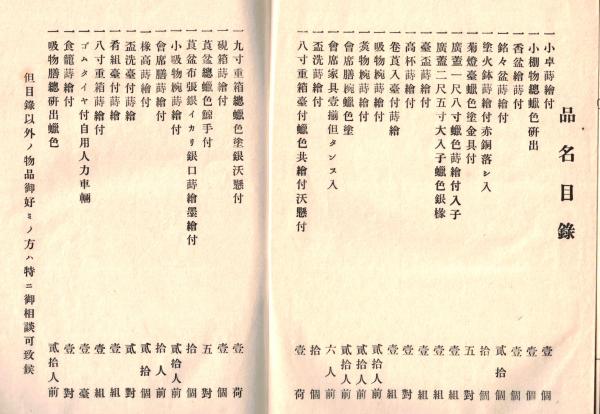 品名目錄
一小卓蒔繪付 壹個
一小棚物總蠟色硏出 壹個
一香盆繪蒔付 壹個
一銘々盆蒔繪付 貳拾個
一塗火鉢蒔繪付赤銅落シ入 拾個
一菊燈臺蠟色塗金具付 五對
一廣蓋一尺八寸蠟色蒔繪付入子 壹組
一廣蓋二尺五寸大入子蠟色銀椽 壹組
一臺盃蒔繪付 壹組
一高杯蒔繪付 壹組
一卷莨入臺付蒔繪 壹個
一吸物椀蒔繪付 貳拾人前
一羮物椀蒔繪付 貳拾人前
一會席膳椀蠟色塗 貳拾人前
一會席家具壹揃但タンス入 六人前
一盃洗蒔繪付 拾個
一八寸重箱臺付蠟色共繪付沃懸付 壹荷
一九寸重箱總蠟色塗銀沃懸付 壹荷
一硯箱蒔繪付 壹個
一莨盆總蠟色餘手付 五對
一莨盆布張銀イカリ銀口蒔繪墨繪付 拾個
一小吸物椀蒔繪付 貳拾人前
一會席膳蒔繪付 拾人前
一椽高蒔繪付 貳拾個
一盃洗臺付蒔繪 貳對
一肴組臺付蒔繪 壹組
一八寸重箱蒔繪付 壹組
一ゴムタイヤ付自用人力車輛 壹臺
一食籠蒔繪付 壹對
一吸物膳總硏出蠟色 貳拾人前
但目錄以外ノ物品御好ミノ方ハ特ニ御相談可致候